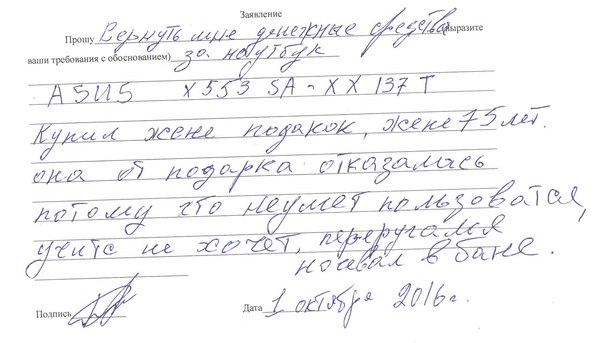 Заявление
Прошу Вернуть мне денежные средства (выразите
ваши требования с обоснованием) за ноутбук
ASUS X553 SA-XX137T
Купил жене подакок, жене 75 лет.
она от подарка отказалась
потому что неумет пользоватся,
учитс не хочет, переругался
ночевал в бане.
Подпись Дата 1 октября 2016г.